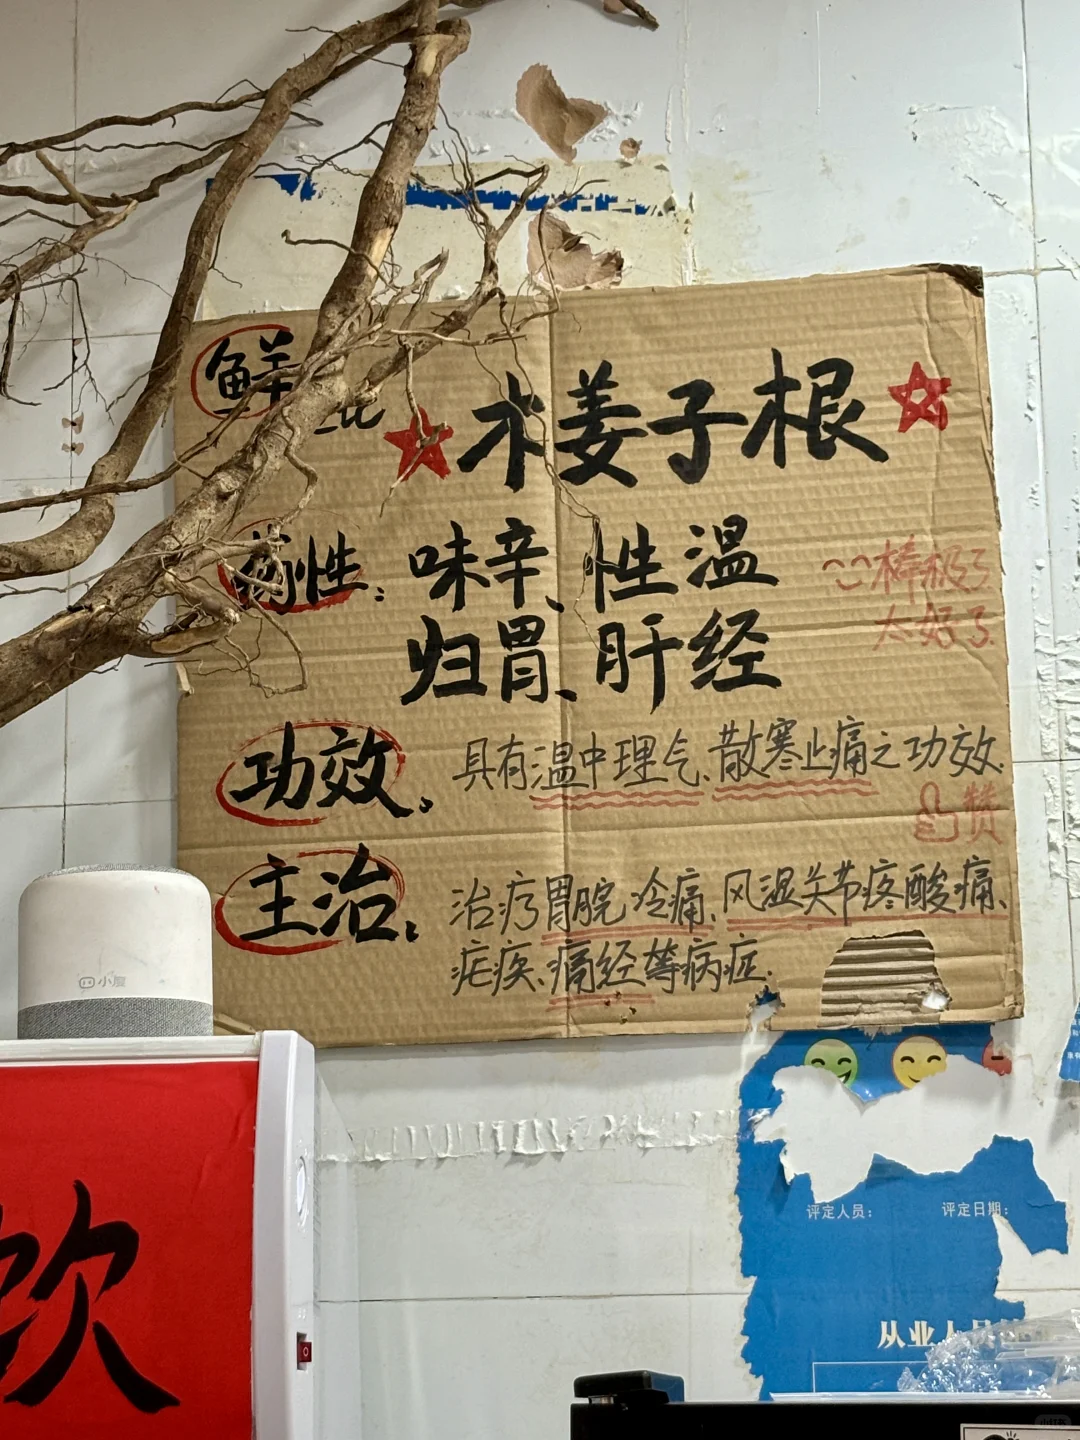 鲜
木姜子根
药性：味辛、性温
归胃、肝经
棒极了
太好了
功效：具有温中理气、散寒止痛之功效
赞
主治：治疗胃脘冷痛、风湿关节疼酸痛、
疟疾、痛经等病症
小度
饮
评定人员：
评定日期：
从业人员